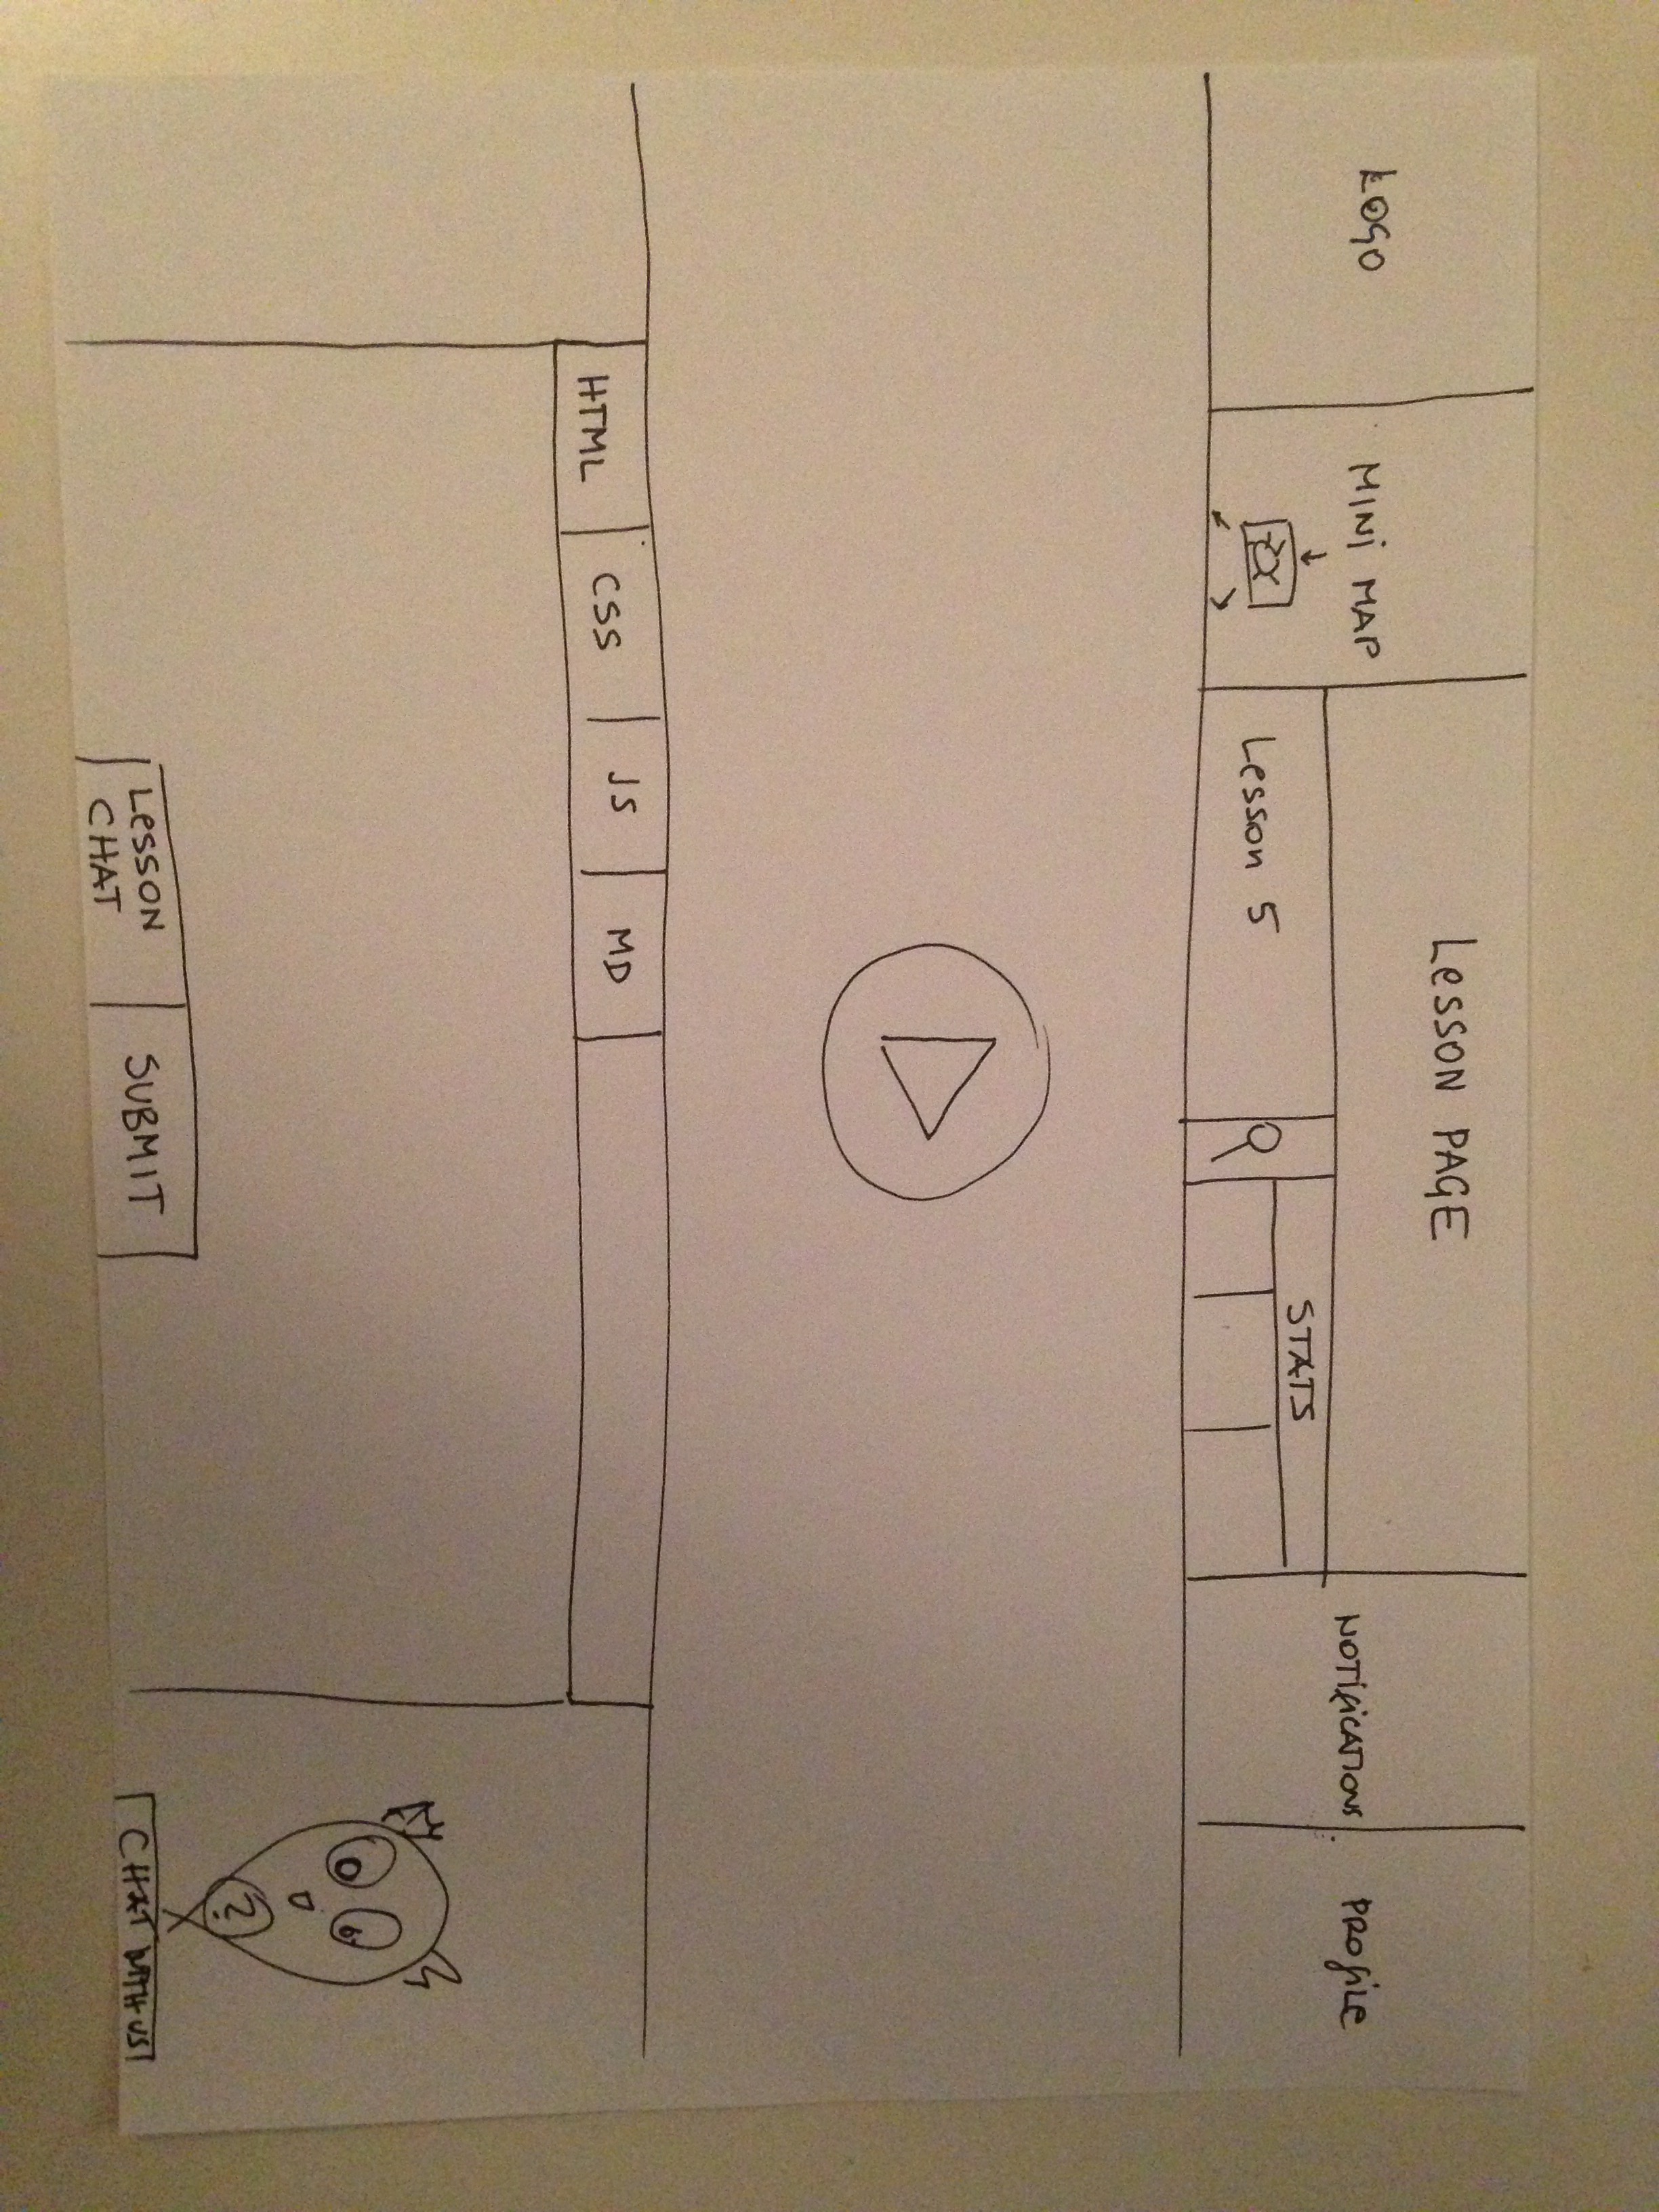 LOGO
MINI MAP
LESSON PAGE
Lesson 5
STATS
NOTIFICATIONS
PROFILE
HTML
CSS
JS
MD
LESSON
CHAT
SUBMIT
?
CHAT WITH US